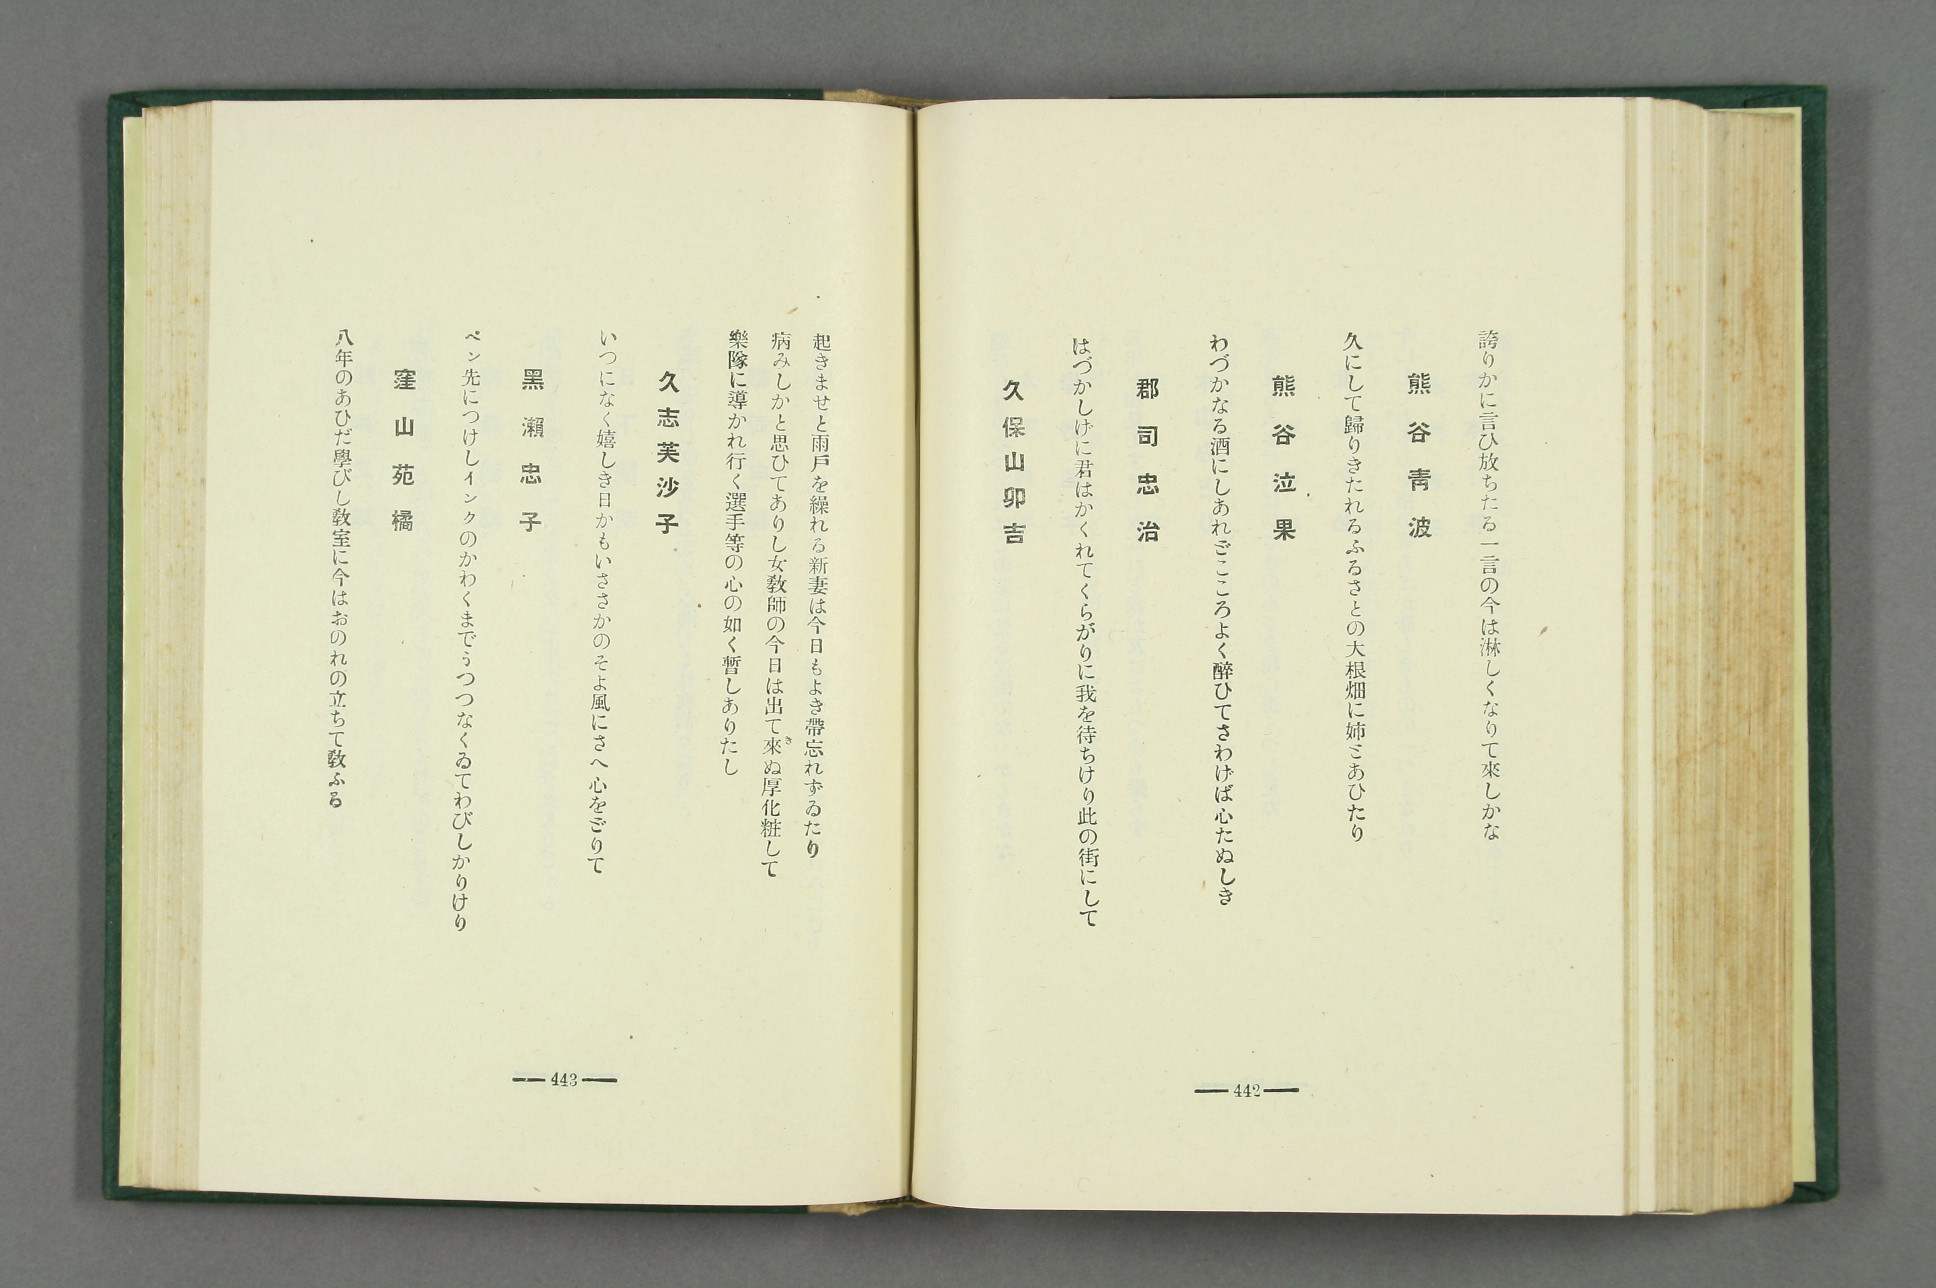 誇りかに言ひ放ちたる一言の今は淋しくなりて來しかな
熊谷靑波
久にして歸りきたれるふるさとの大根畑に姉とあひたり
熊谷泣果
わづかなる酒にしあれどこころよく醉ひてさわげば心たぬしき
郡司忠治
はづかしげに君はかくれてくらがりに我を待ちけり此の街にして
久保山卯吉
442
起きませと雨戶を繰れる新妻は今日もよき帶忘れずゐたり
病みしかと思ひてありし女敎師の今日は出て來ぬ厚化粧して
き
樂隊に導かれ行く選手等の心の如く暫しありたし
久志芙沙子
いつになく嬉しき日かもいささかのそよ風にさへ心をどりて
黑瀨忠子
ペン先につけしインクのかわくまでうつつなくゐてわびしかりけり
窪山苑橘
八年のあひだ學びし敎室に今はおのれの立ちて敎ふる
443